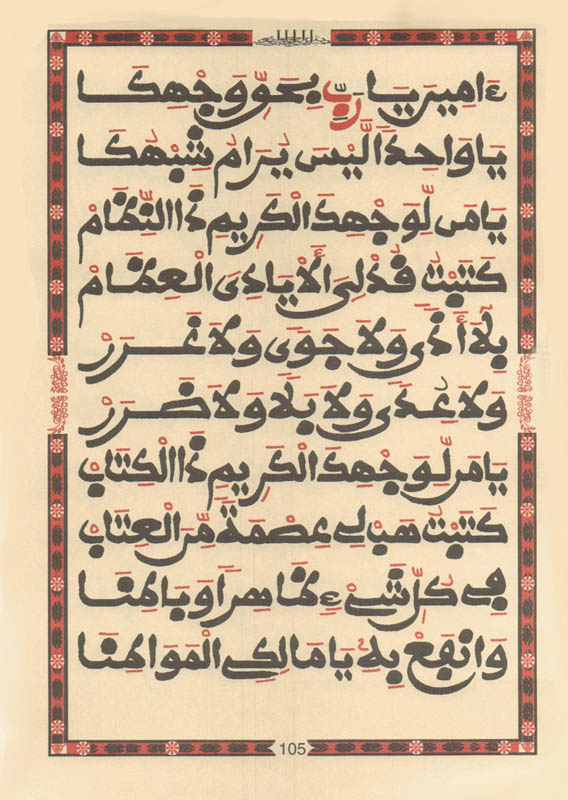 ءَامِينَ يَا رَبِّ بِحَقِّ وَجْهِكَا
يَا وَاحِدًا لَّيْسَ يُرَامُ شِبْهُكَا
يَا مَن لِّوَجْهِكَ الْكَرِيمِ ذَا النِّظَامْ
كَتَبْتُ قُدْ لِيَ الْأَيَادِيَ الْعِظَامْ
بِلَا أَذًى وَلَا جَوًى وَلَا غَرَرْ
وَلَا عِدًى وَلَا بَلًا وَلَا ضَرَرْ
يَا مَن لِّوَجْهِكَ الْكَرِيمِ ذَا الْكِتَابْ
كَتَبْتُ هَبْ لِي عِصْمَةً مِّنَ الْعِتَابْ
فِي كُلِّ شَيْءٍ ظَاهِرًا وَبَاطِنَا
وَانْفَعْ بِهِ يَا مَالِكِي الْمَوَاطِنَا
105